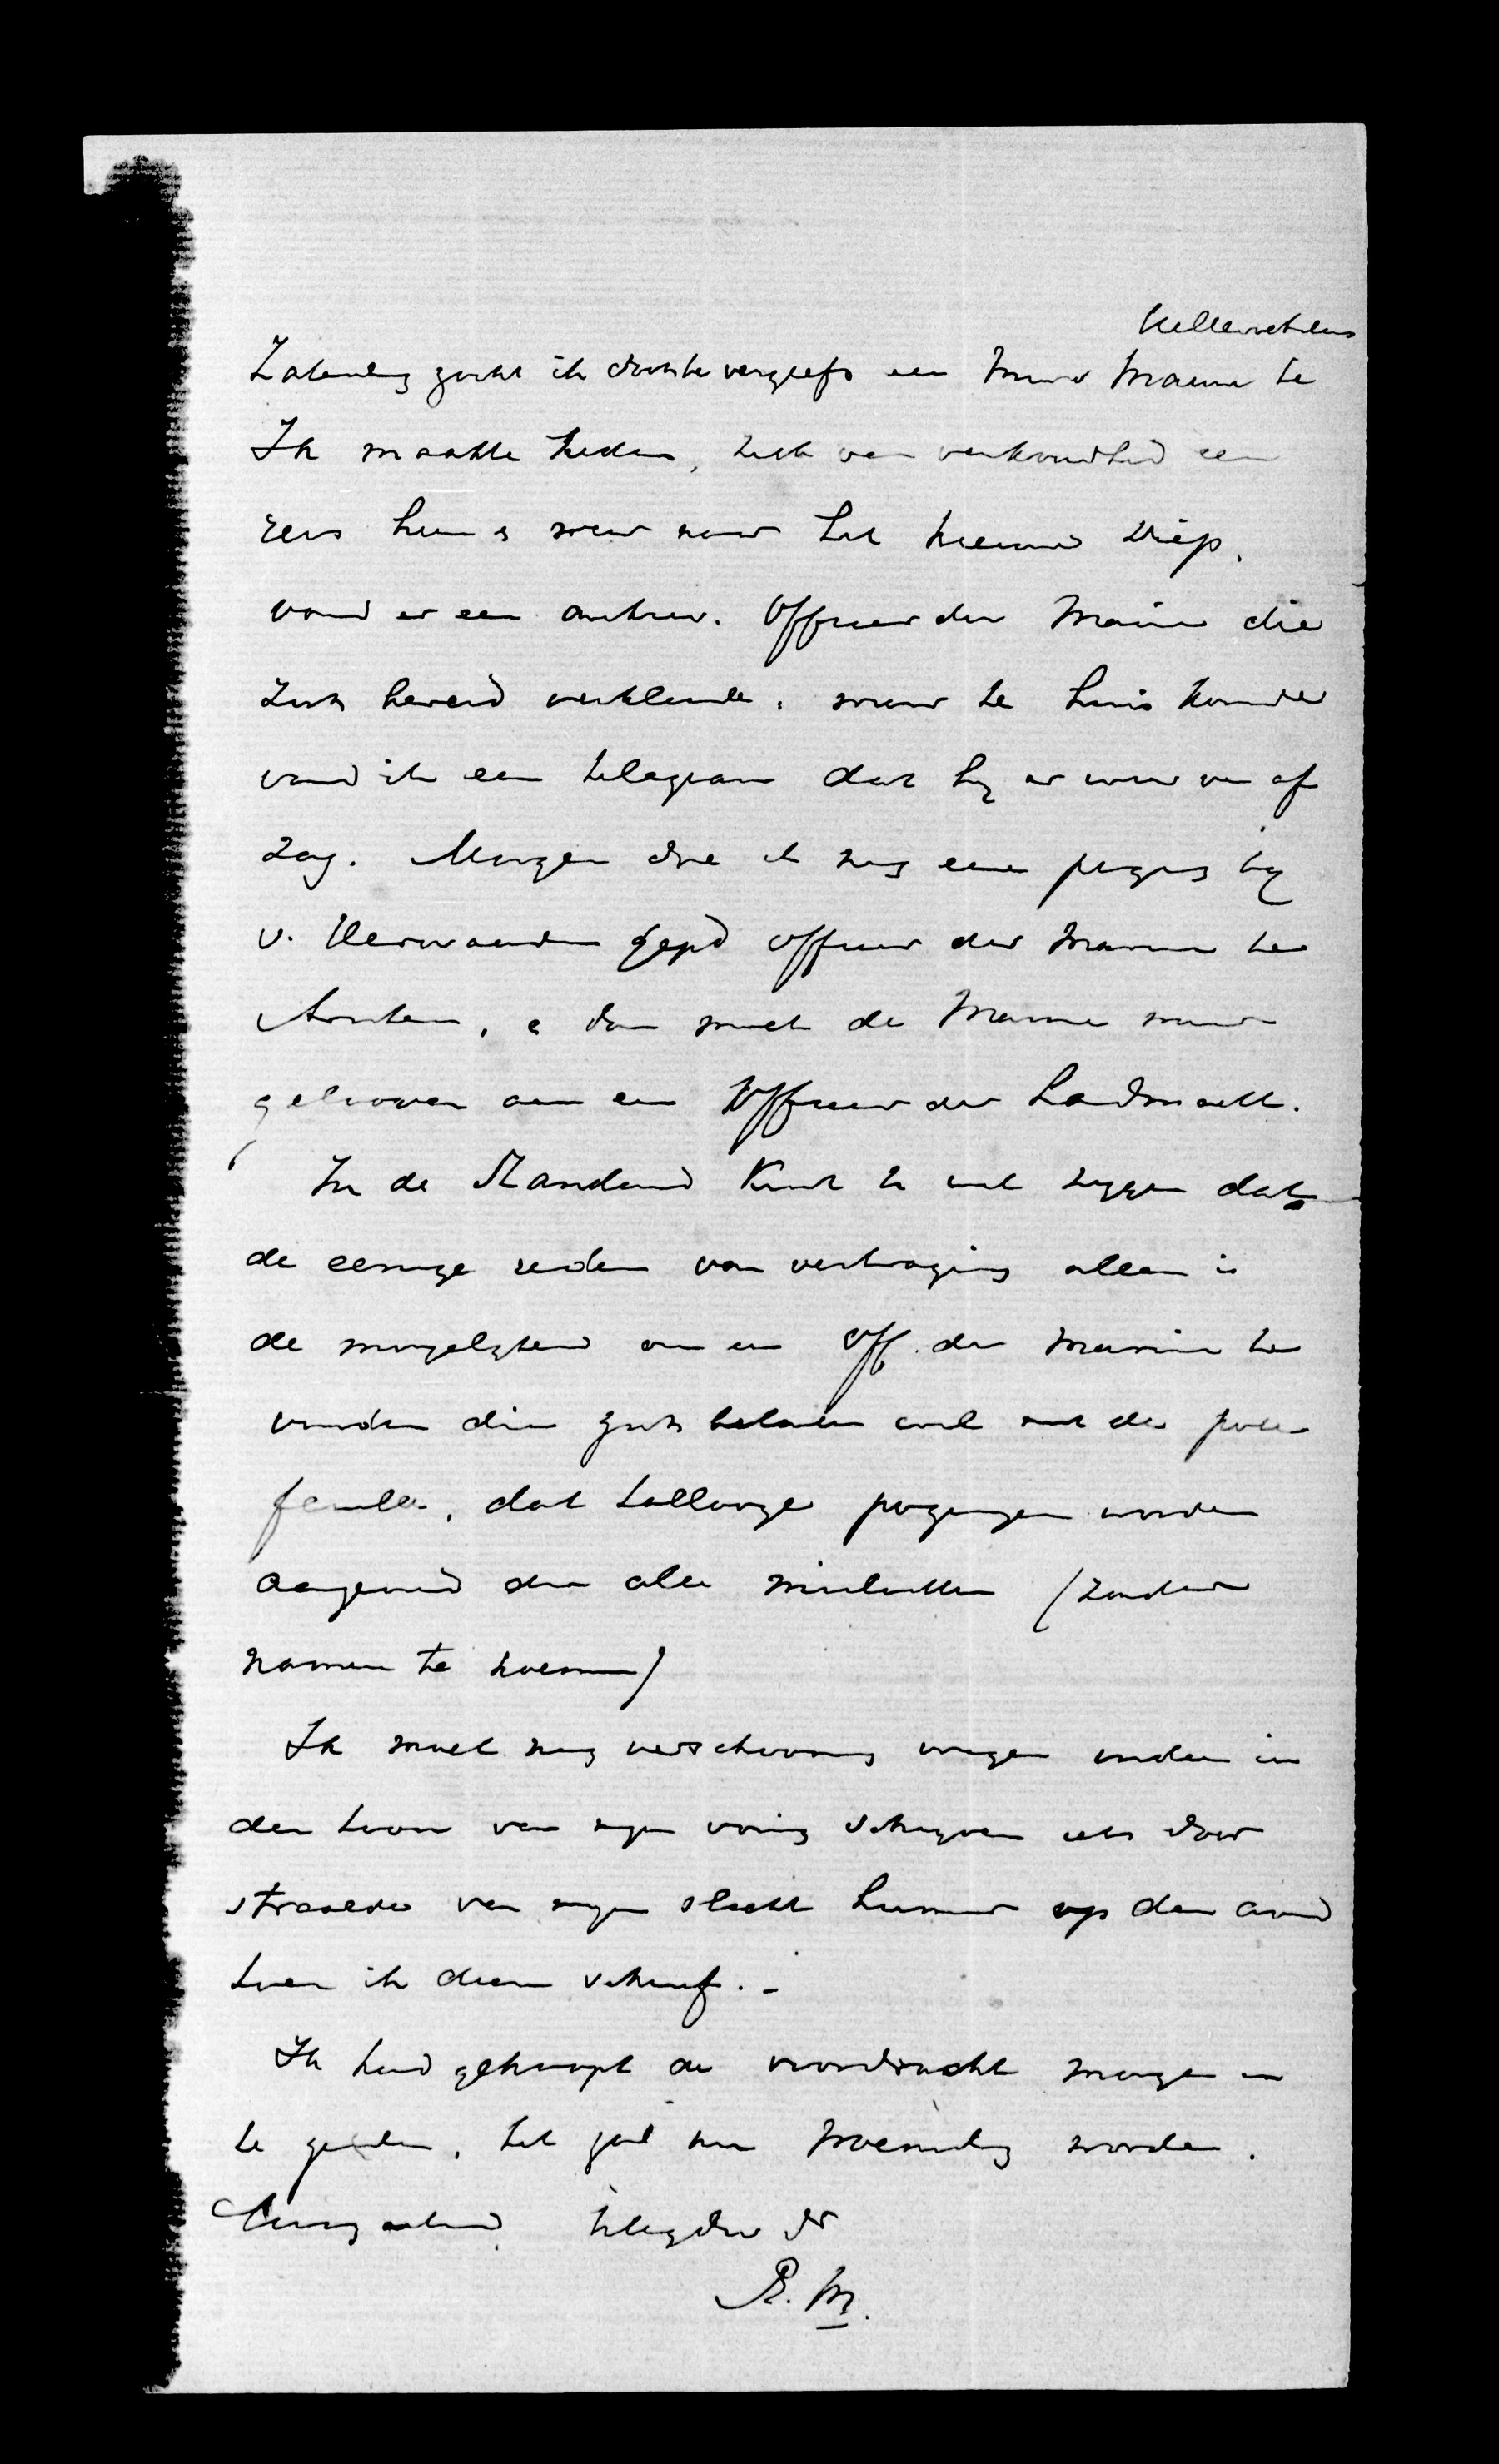 Hellevoetsluis
Zaterdag zocht ik dochte vergeefs een Min v Marine te
Ik maakte heden, ziek van verkoudheid een
reis heen & weer naar het Nieuwe Diep.
vond er een Officier der Marine die
zich bereid verklaarde, weer te huis komende
vond ik een telegram dat hij er weer van af
zag. Morgen doe ik nog eene poging bij
v. gepd officier der Marine te
Arnhem, & dan moet de Marine maar
gelooven aan een Officier der Landmacht.
In de Standaard kunt U wel zeggen dat
de eenige reden van vertraging alleen is
de moeijelijkheid om een Off. der Marine te
vinden die zich belasten wil met de porte
feuille, dat tallooze pogingen worden
aangewend door alle (zonder
namen te noemen)
Ik moet nog verschooning vragen indien in
den toon van mijn vorig schrijven iets door
straalde van mijn slecht humeur op den avond
toen ik dien schreef. -
Ik had gehoopt de voordracht morgen in
te zenden, het zal nu Woensdag worden.
Hoogachtend
R. M.